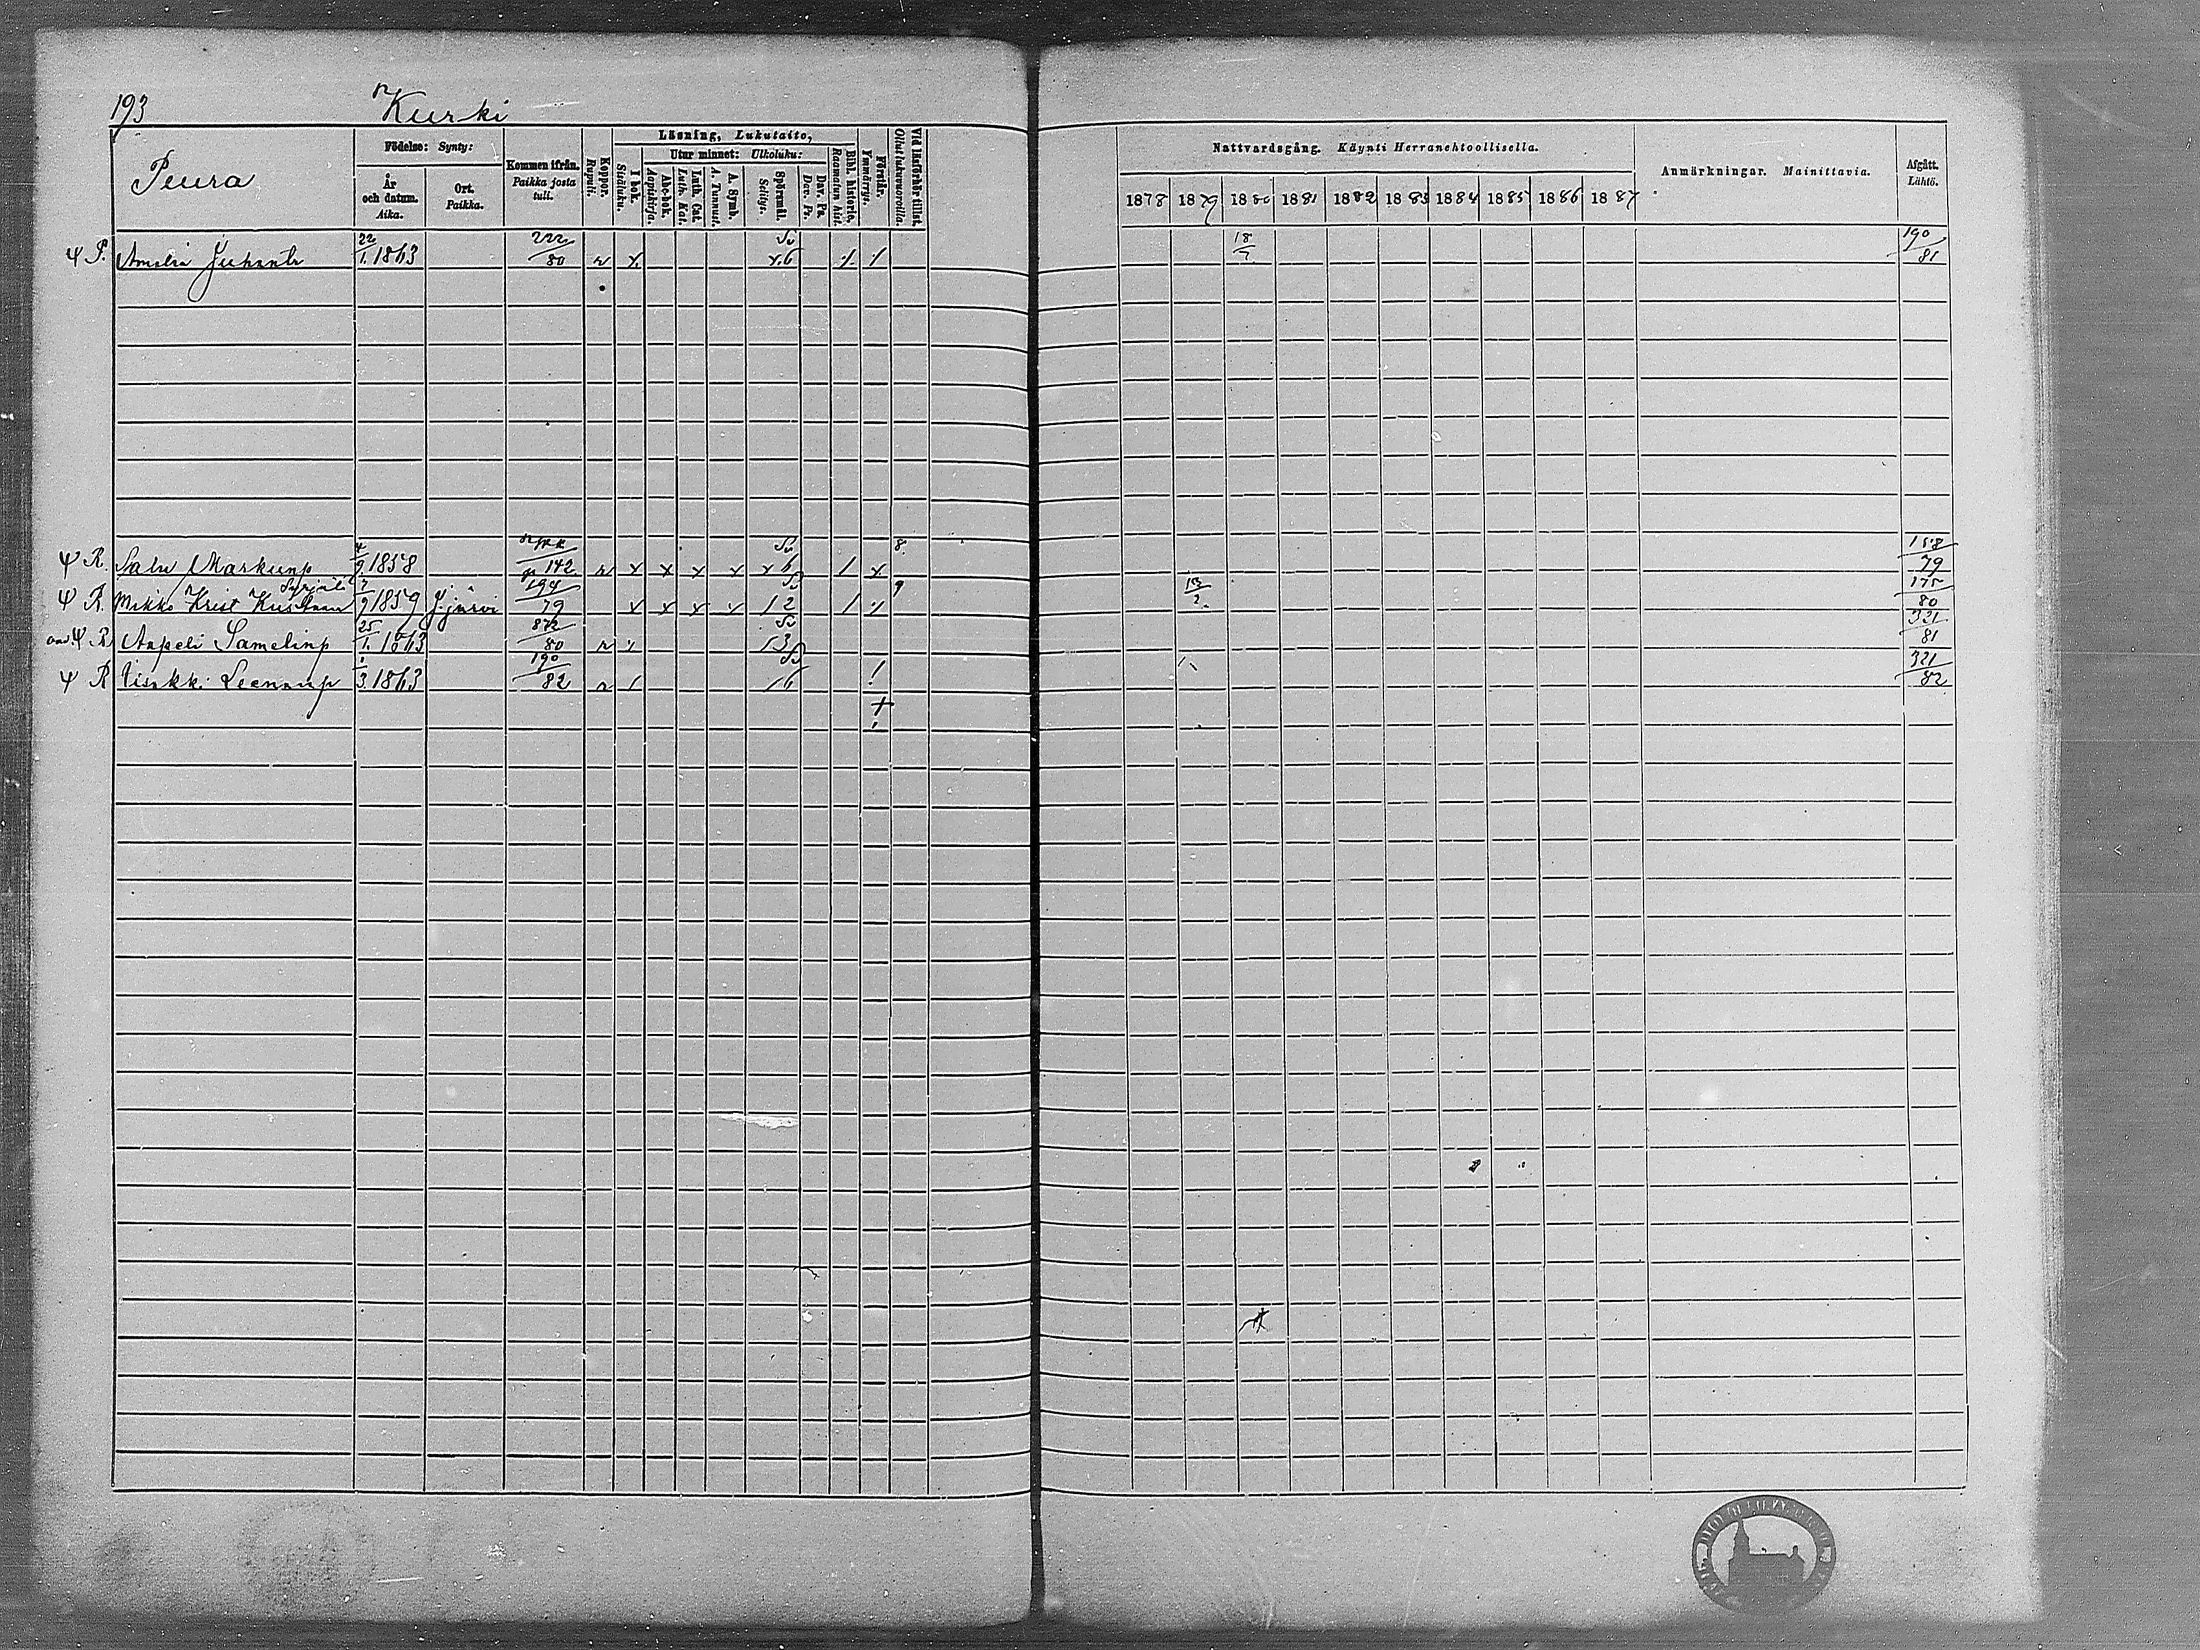 193 Kurki
Peura
Födelse: Synty:
År och datum. Aika.
Ort. Paikka.
Kommen ifrån. Paikka josta tuli.
Koppor. Rupuli.
Läsning, Lukutaito,
I bok. Sisäluku.
Utur minnet: Ulkoluku:
Abc-bok. Aapiskirja.
Luth. Cat. Luth. Kat.
A. Symb. A. Tunnust.
Spörsmål. Selitys.
Dav. Ps. Dav. Ps.
Bibl. historie, Raamatun hist.
Förstår. Ymmärrys.
Vid läsförhör tillst. Ollut lukuvuorolla.
Nattvardsgång. Käynti Herranehtoollisella.
1878 1879 1880 1881 1882 1883 1884 1885 1886 1887
Anmärkningar. Mainittavia.
Afgått. Lähtö.
P. Amalia Juhant. 22/1. 1863 222/80 18/7 190/81
R. Salu Markunp 4/9 1858 p 142 8. 158/79
R. Mikko Krist Kustaanp 7/9 1859 J.järvi 194/79 9 175/80
R Aapeli Samelinp 25/1. 1863 872/80 321/81
R Iisakki Leenanp 3. 1863 190/82 321/82